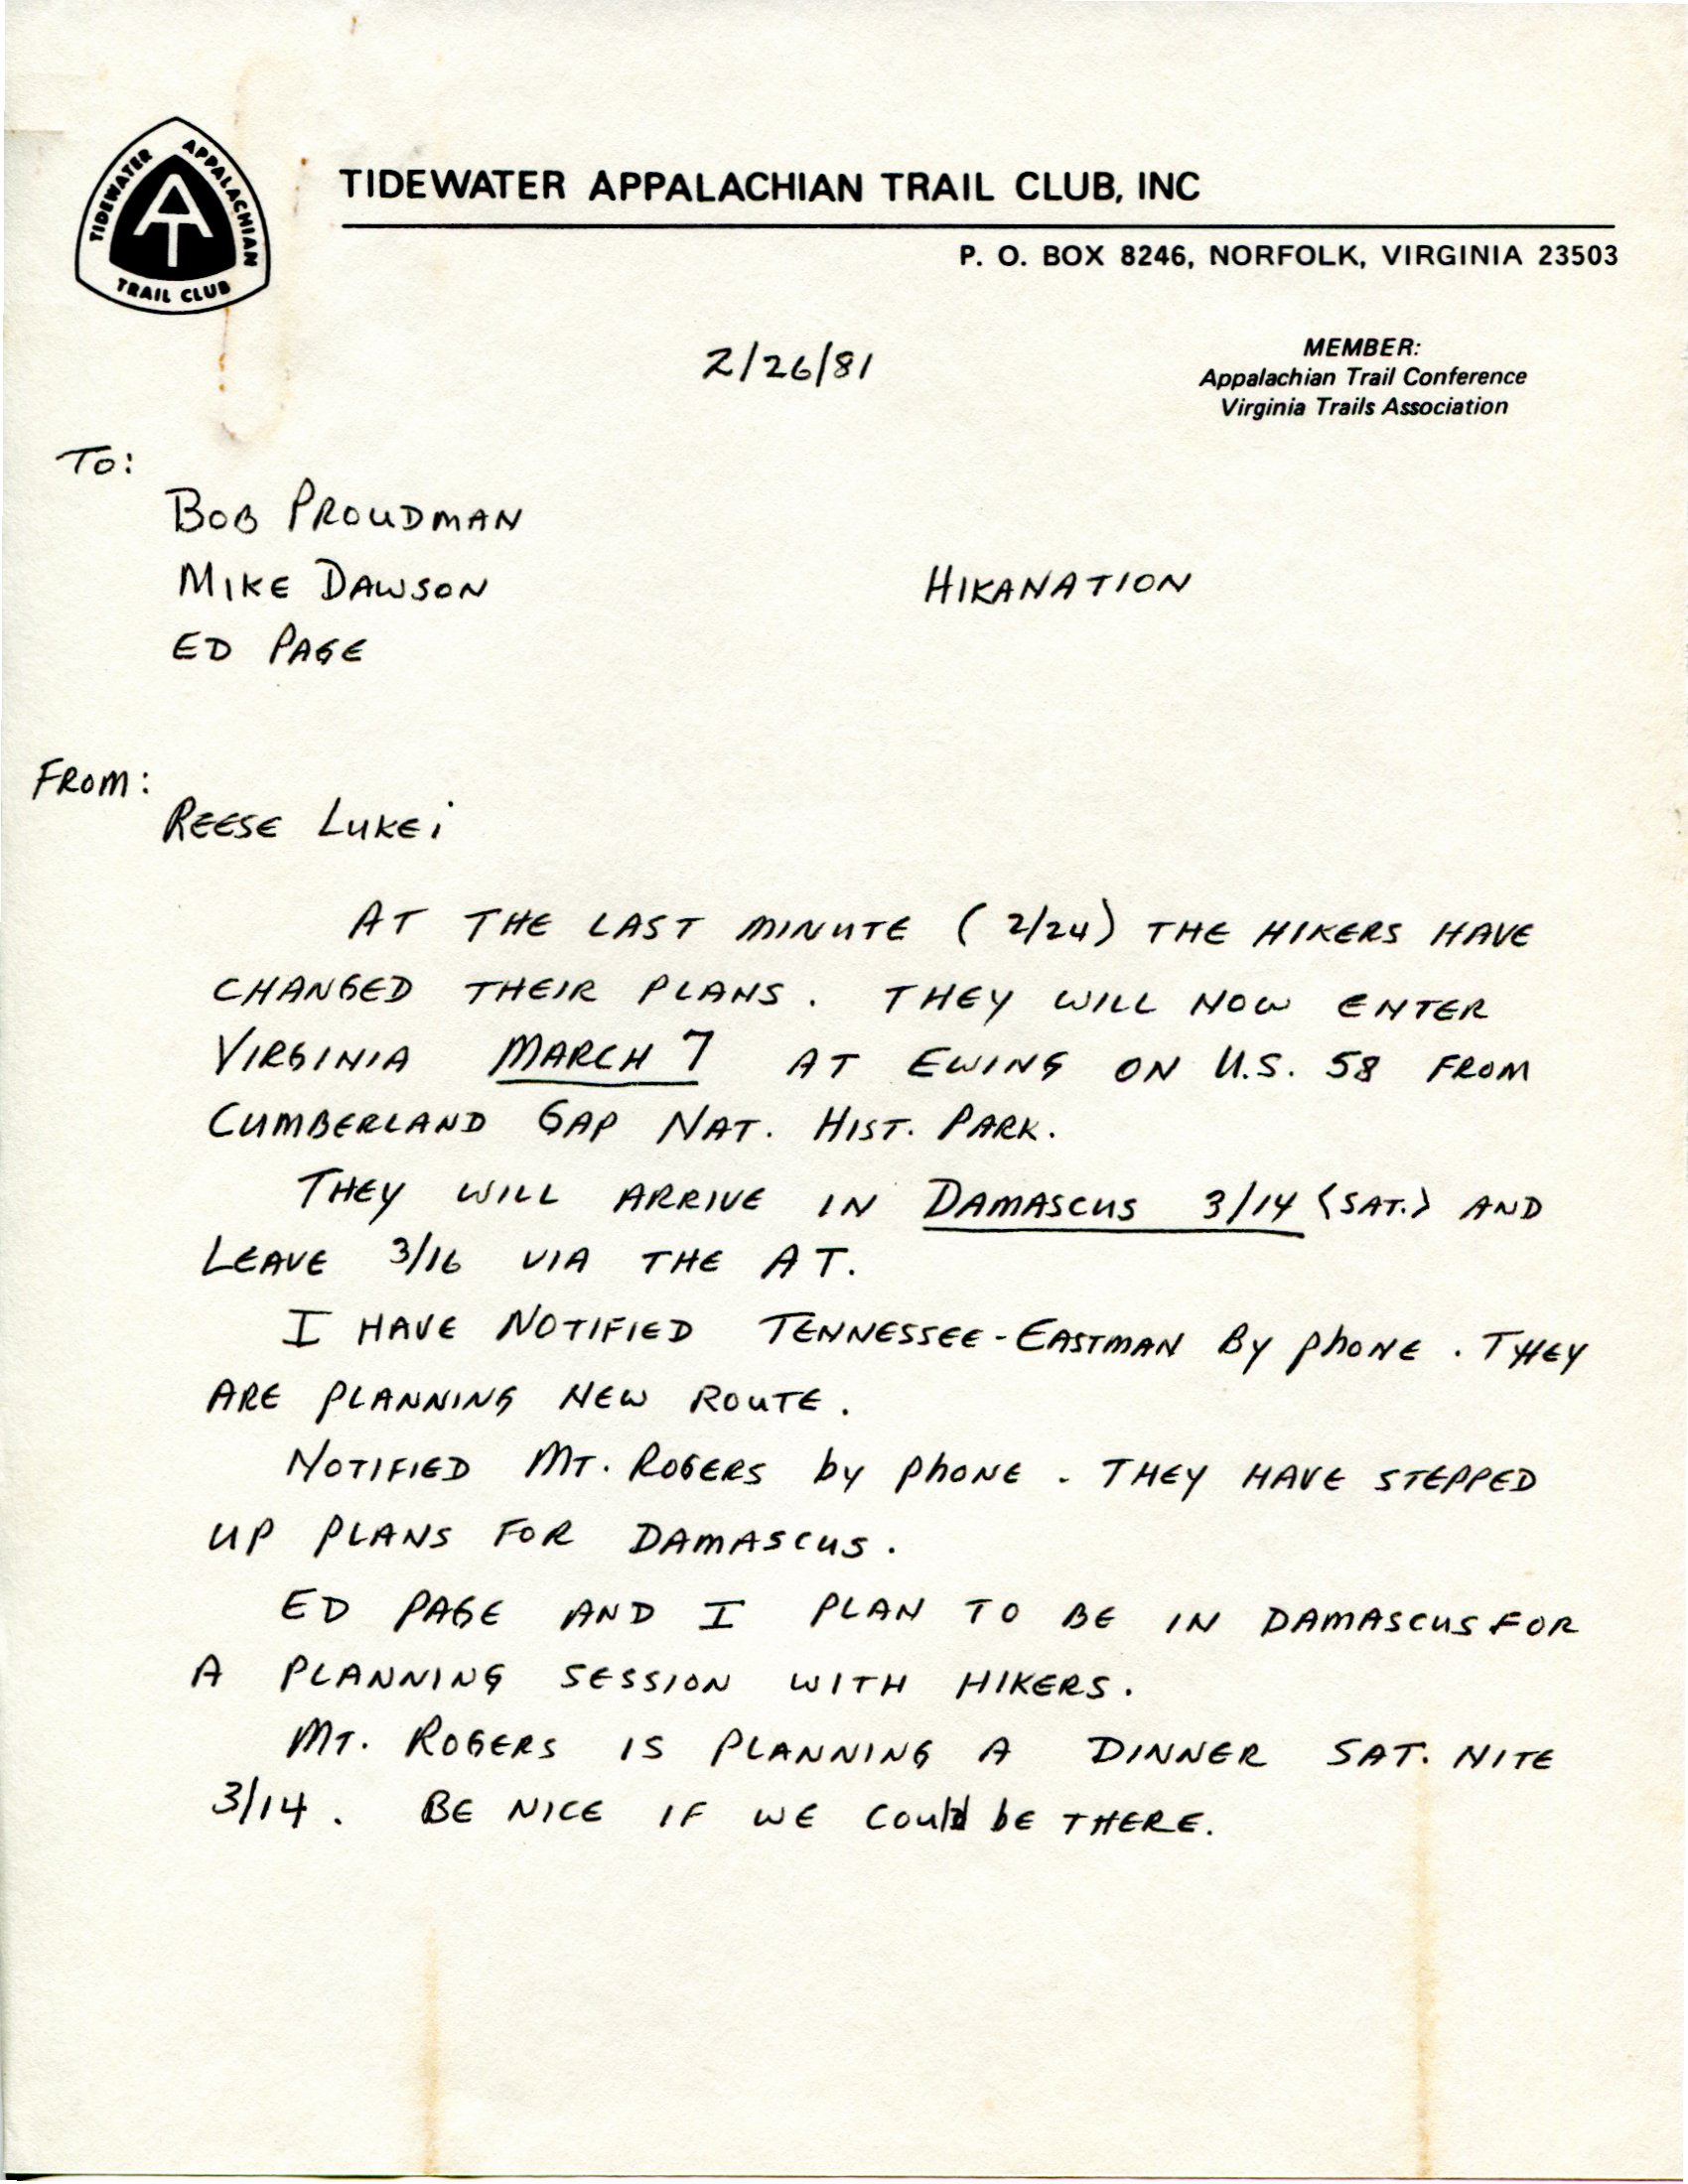 TIDEWATER APPALACHIAN
TRAIL CLUB
TIDEWATER APPALACHIAN TRAIL CLUB, INC
P. O. BOX 8246, NORFOLK, VIRGINIA 23503
2/26/81
MEMBER:
Appalachian Trail Conference
Virginia Trails Association
TO:
BOB PROUDMAN
MIKE DAWSON
HIKANATION
ED PAGE
FROM:
REESE LUKEi
AT THE LAST MINUTE (2/24) THE HIKERS HAVE
CHANGED THEIR PLANS. THEY WILL NOW ENTER
VIRGINIA MARCH 7 AT EWING ON U.S. 58 FROM
CUMBERLAND GAP NAT. HIST. PARK.
THEY WILL ARRIVE IN DAMASCUS 3/14 (SAT.) AND
LEAVE 3/16 VIA THE AT.
I HAVE NOTIFIED TENNESSEE-EASTMAN By phONE. THEY
ARE PLANNING NEW ROUTE.
NOTIFIED MT. ROGERS by phONE. THEY HAVE STEPPED
UP PLANS FOR DAMASCUS.
ED PAGE AND I PLAN TO BE IN DAMASCUS FOR
A PLANNING SESSION WITH HIKERS.
MT. ROGERS IS PLANNING A DINNER SAT. NITE
3/14. BE NICE IF WE Could bE THERE.